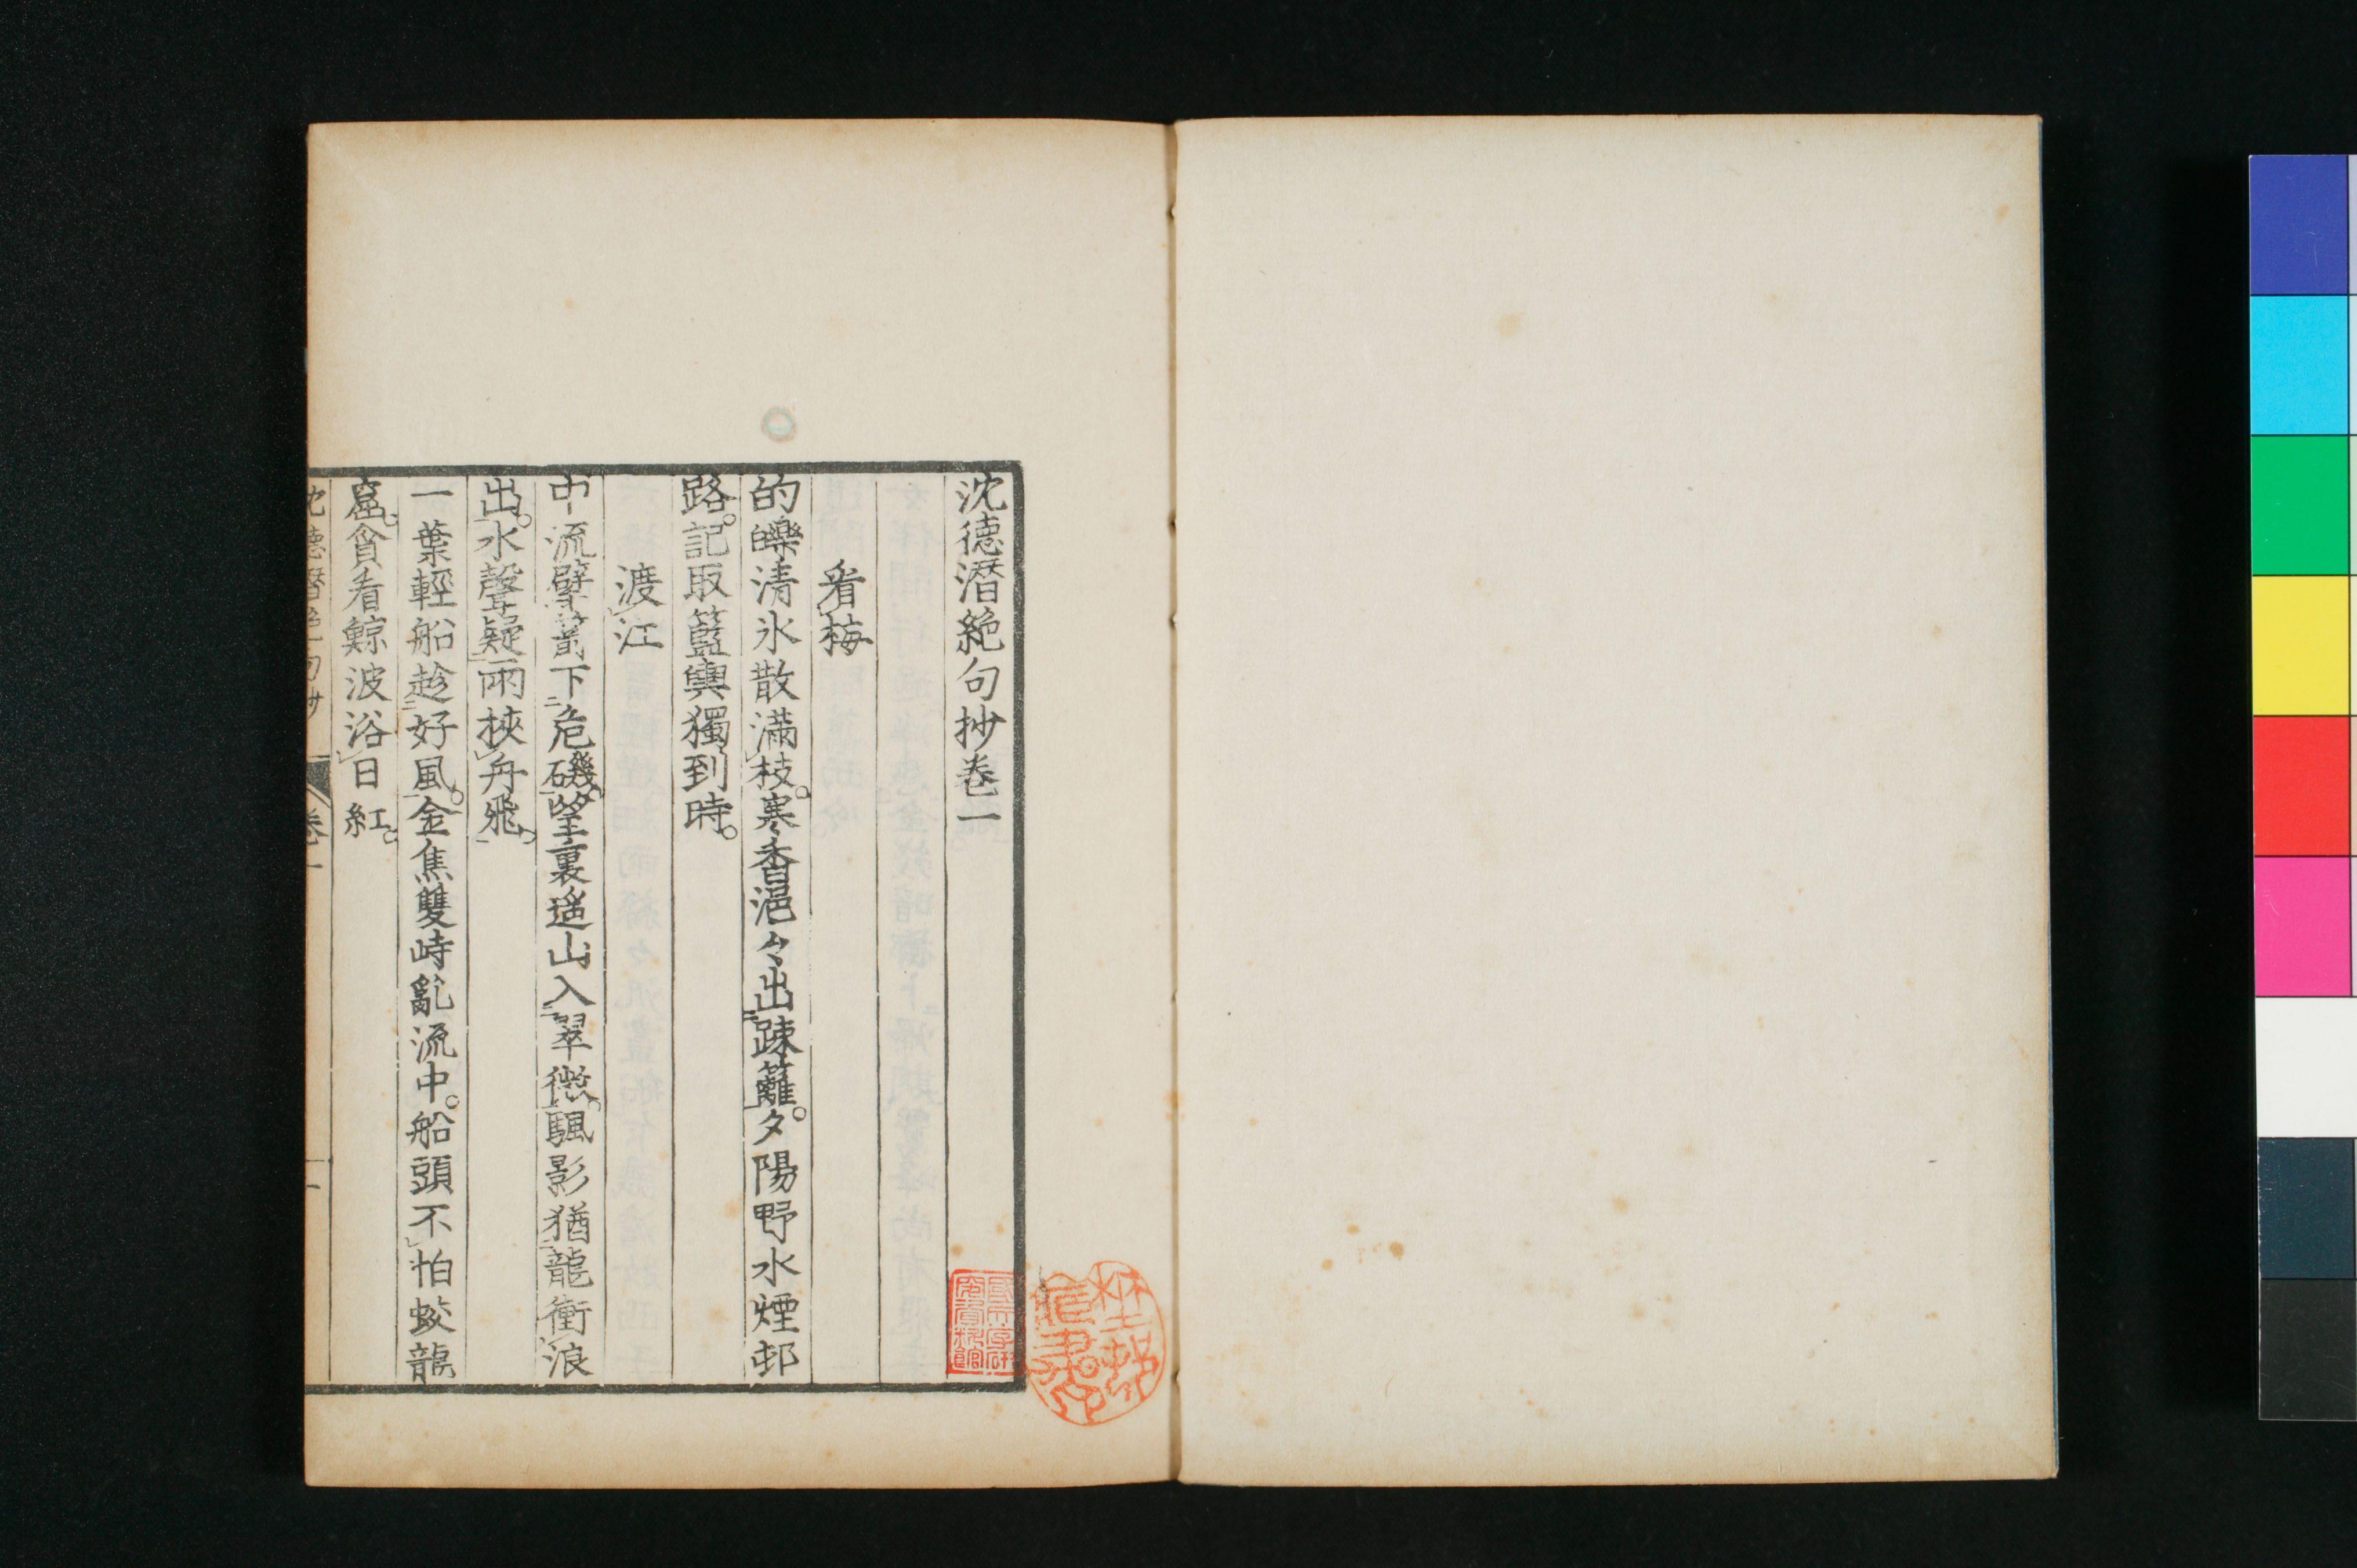 沈德潛絕句抄卷一
看梅
的皪清氷散滿枝。寒香浥々出疎籬。夕陽野水煙邨
路。記取籃輿獨到時。
渡江
中流擘箭下危磯。望裏遙山入翠微。颿影猶龍衝浪
出。水聲疑雨挾舟飛。
一葉輕船趁好風。金焦雙峙亂流中。船頭不怕蛟龍
窟。貪看鯨波浴日紅。
沈德潛絕句抄
卷一
一